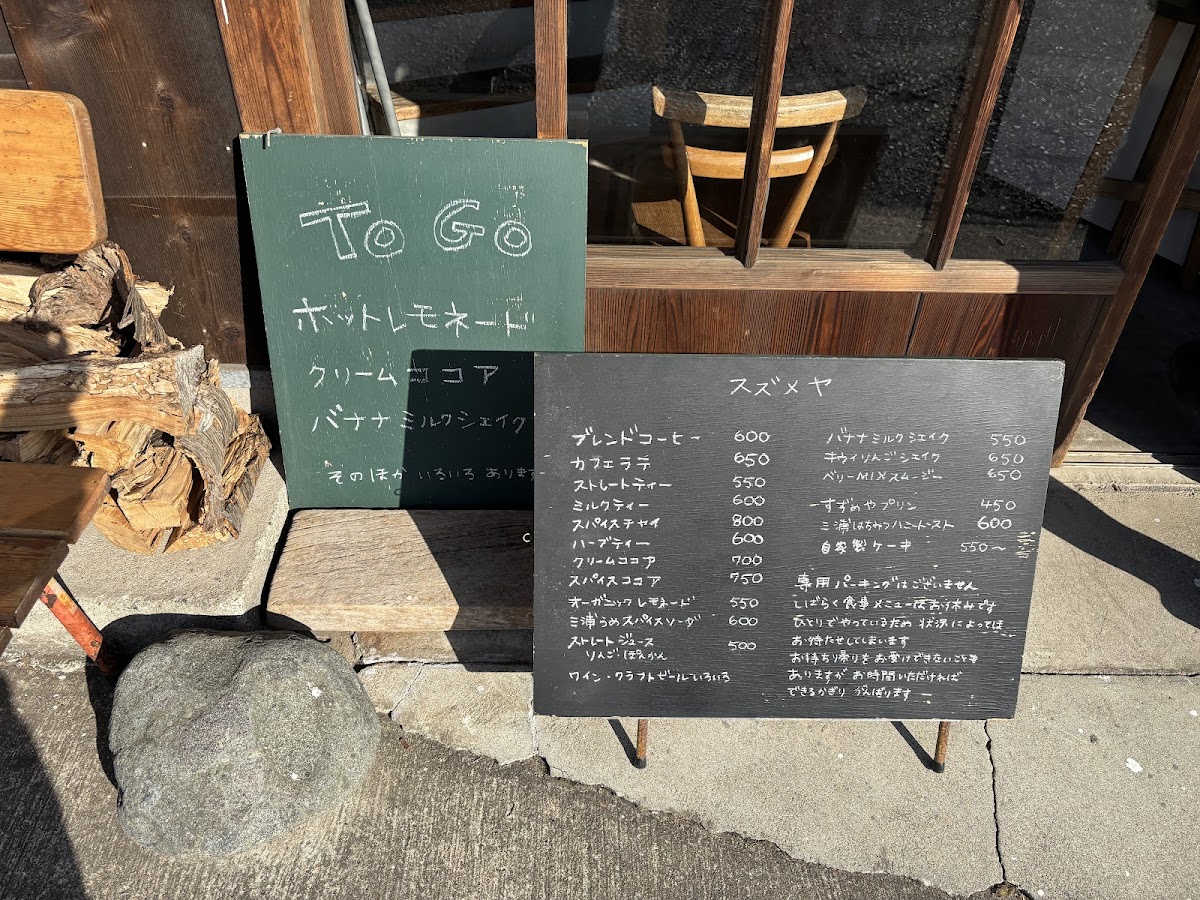 To Go
ホットレモネード
クリームココア
バナナミルクシェイク
そのほか いろいろ あります
スズメヤ
ブレンドコーヒー 600
カフェラテ 650
ストレートティー 550
ミルクティー 600
スパイスチャイ 800
ハーブティー 600
クリームココア 700
スパイスココア 750
オーガニックレモネード 550
三浦うめスパイスソーダ 600
ストレートジュース 500
りんご ぽんかん
ワイン・クラフトビールいろいろ
バナナミルクシェイク 550
キウイりんごシェイク 650
ベリーMIXスムージー 650
すずめやプリン 450
三浦はちみつハニートースト 600
自家製ケーキ 550〜
専用パーキングはございません
しばらく食事メニューはお休みです
ひとりでやっているため 状況によっては
お待たせしてしまいます
お持ち帰りをお受けできないことも
ありますが お時間いただければ
できるかぎり がんばります